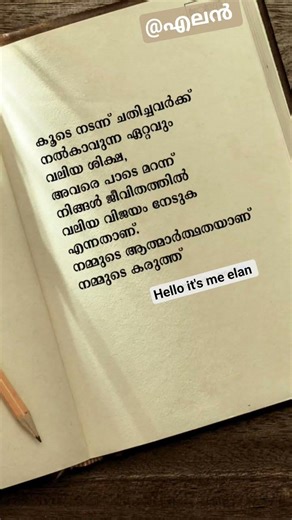 @എലൻ
കൂടെ നടന്ന് ചതിച്ചവർക്ക്
നൽകാവുന്ന ഏറ്റവും
വലിയ ശിക്ഷ,
അവരെ പാടെ മറന്ന്
നിങ്ങൾ ജീവിതത്തിൽ
വലിയ വിജയം നേടുക
എന്നതാണ്.
നമ്മുടെ ആത്മാർത്ഥതയാണ്
നമ്മുടെ കരുത്ത്
Hello it's me elan